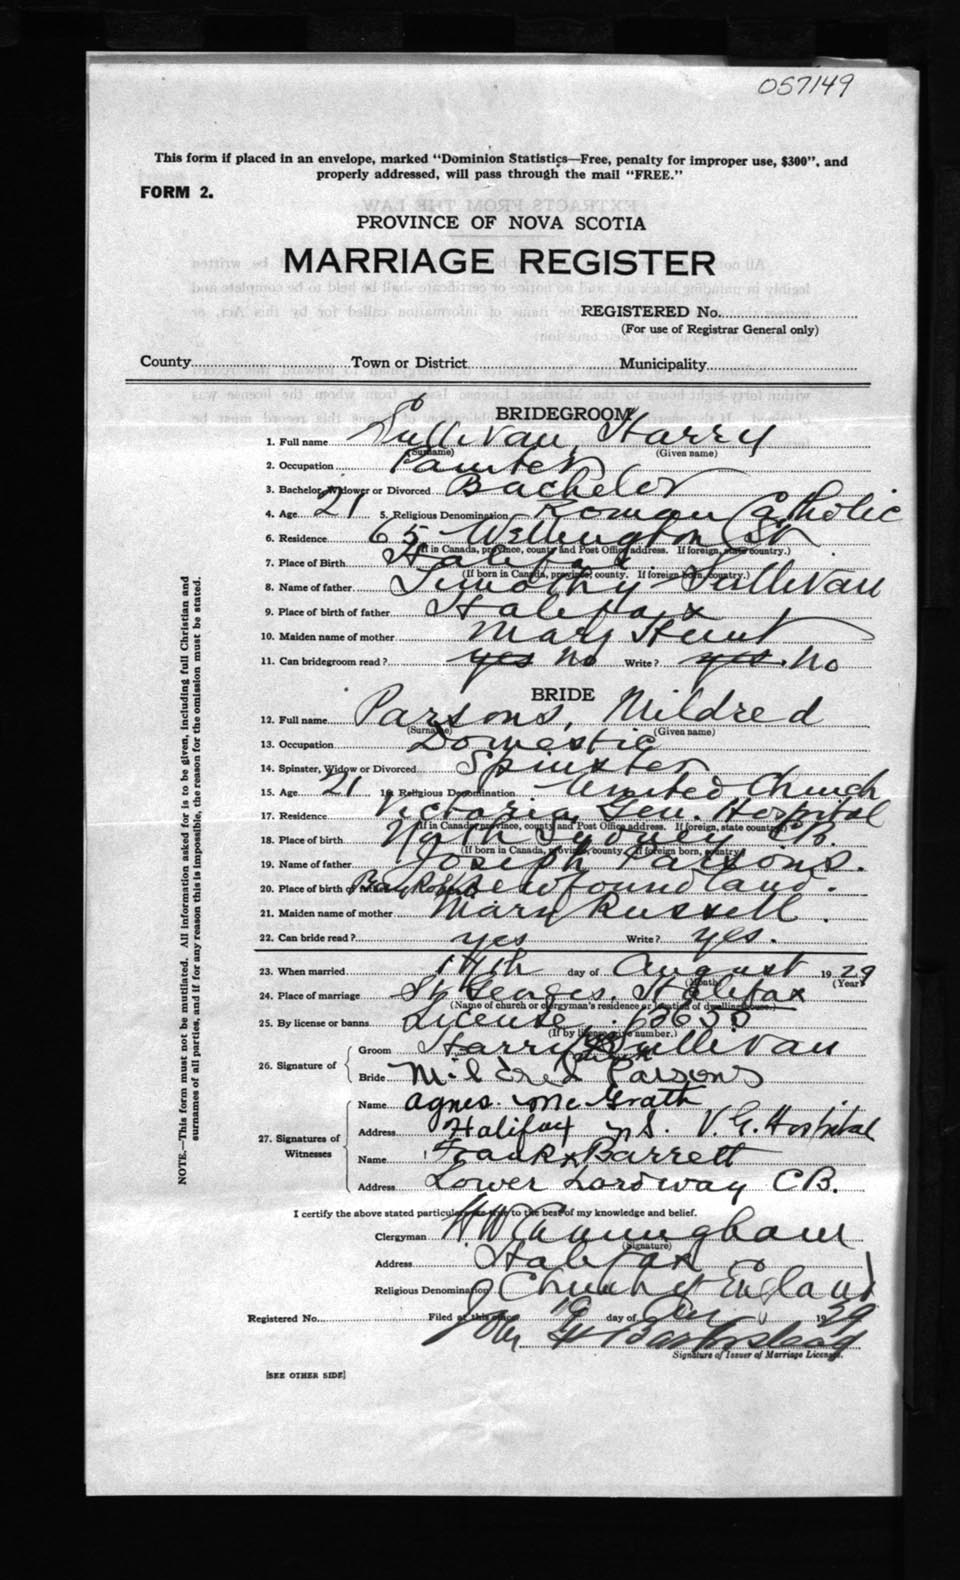 057149
This form if placed in an envelope, marked "Dominion Statistics—Free, penalty for improper use, $300", and
properly addressed, will pass through the mail "FREE."
FORM 2.
PROVINCE OF NOVA SCOTIA
MARRIAGE REGISTER
REGISTERED No.
(For use of Registrar General only)
County Town or District Municipality
BRIDEGROOM
1. Full name Sullivan, Harry
(Surname) (Given name)
2. Occupation Painter
3. Bachelor, Widower or Divorced Bachelor
4. Age 21 5. Religious Denomination Roman Catholic
6. Residence 65 Wellington St
(If in Canada, province, county and Post Office address. If foreign, state country.)
7. Place of Birth Halifax
(If born in Canada, province, county. If foreign born, country.)
8. Name of father Timothy Sullivan
9. Place of birth of father Halifax
10. Maiden name of mother Mary Hunt
11. Can bridegroom read? yes No Write? yes. No
BRIDE
12. Full name Parsons, Mildred
(Surname) (Given name)
13. Occupation Domestic
14. Spinster, Widow or Divorced Spinster
15. Age 21 16. Religious Denomination United Church
17. Residence Victoria Gen. Hospital
(If in Canada, province, county and Post Office address. If foreign, state country.)
18. Place of birth North Sydney C.B.
(If born in Canada, province, county. If foreign born, country.)
19. Name of father Joseph Parsons.
20. Place of birth of father Bay Roberts Newfoundland.
21. Maiden name of mother Mary Russell.
22. Can bride read? yes Write? yes.
23. When married 14th day of August 1929
(Month) (Year)
24. Place of marriage St Georges, Halifax
(Name of church or clergyman's residence or location of dwelling house.)
25. By license or banns License
(If by license give number.)
26. Signature of
Groom Harry Sullivan
Bride Mildred Parsons
27. Signatures of Witnesses
Name Agnes Mc Grath
Address Halifax N.S. V.G. Hospital
Name Frank Barrett
Address Lower CB.
I certify the above stated particulars are true to the best of my knowledge and belief.
Clergyman H W Cunningham
(Signature)
Address Halifax
Religious Denomination Church of England
Registered No. Filed at this office 19 day of 1929
Signature of Issuer of Marriage License.
[SEE OTHER SIDE]
NOTE.—This form must not be mutilated. All information asked for is to be given, including full Christian and
surnames of all parties, and if for any reason this is impossible, the reason for the omission must be stated.